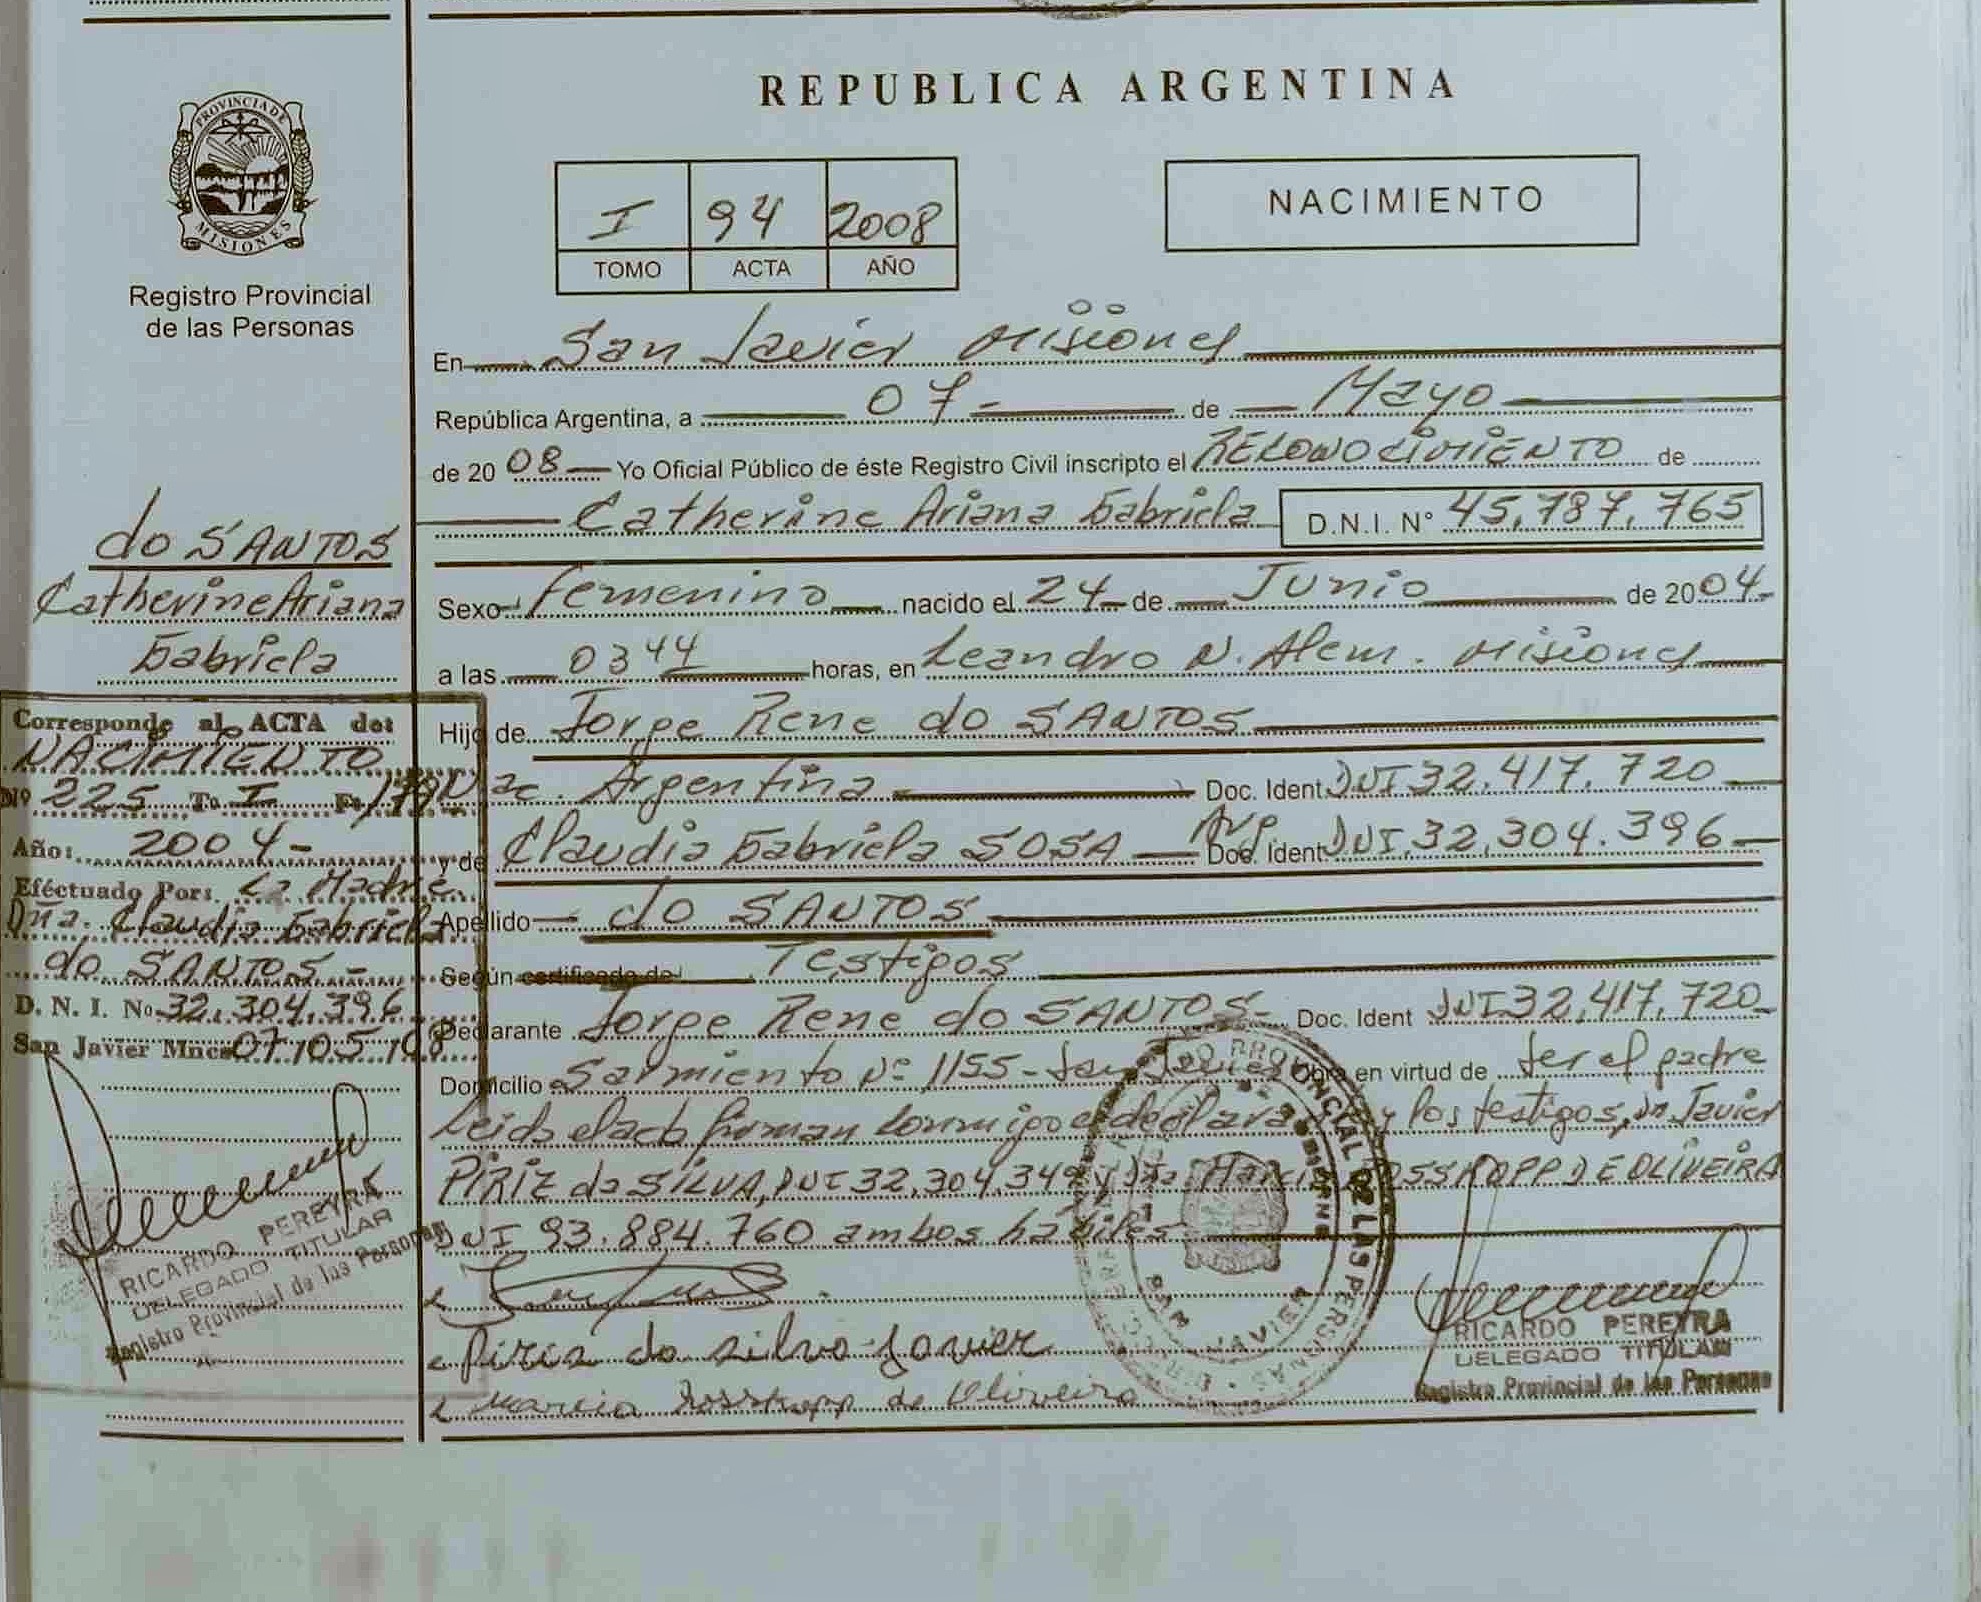 PROVINCIA DE
MISIONES
Registro Provincial
de las Personas
REPUBLICA ARGENTINA
I 94 2008
TOMO ACTA AÑO
NACIMIENTO
En San Javier Misiones
República Argentina, a 07- de Mayo
de 2008 Yo Oficial Público de éste Registro Civil inscripto el RECONOCIMIENTO de
Catherine Ariana Gabriela D.N.I. N° 45,787,765
Sexo femenino nacido el 24 de Junio de 2004
a las 0344 horas, en Leandro N. Alem. Misiones
Hijo de Jorge Rene do SANTOS
Nac. Argentina Doc. Ident DNI 32.417.720
y de Claudia Gabriela SOSA Arg Doc. Ident DNI 32,304.396
Apellido do SANTOS
Según certificado de Testigos
Declarante Jorge Rene do SANTOS Doc. Ident DNI 32,417,720
Domicilio Sarmiento N° 1155 - San Javier Obra en virtud de ser el padre
Leida el acta firman conmigo el declarante y los testigos, Dn Javier
PIRIZ da SILVA, DNI 32,304,349 y Dña. Marcia ROSSKOPP DE OLIVEIRA
DNI 93.884.760 ambos hábiles
Piriz da silva Javier
Marcia Rosskopp de Oliveira
RICARDO PEREYRA
DELEGADO TITULAR
Registro Provincial de las Personas
do SANTOS
Catherine Ariana
Gabriela
Corresponde al ACTA de:
NACIMIENTO
Nº 225 To I Fo 179
Año: 2004-
Eféctuado Por: La Madre
Dña. Claudia Gabriela
do SANTOS -
D. N. I. No 32.304.396
San Javier Mnes 07/05/08
RICARDO PEREYRA
DELEGADO TITULAR
Registro Provincial de las Personas
PROVINCIAL DE LAS PERSONAS
MISIONES
SAN JAVIER